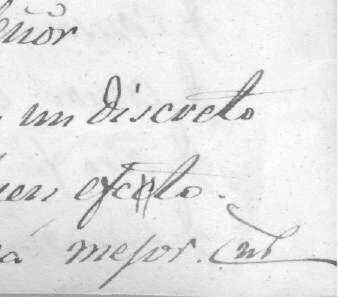 eñor
un discreto
uen efecto.
á mejor.